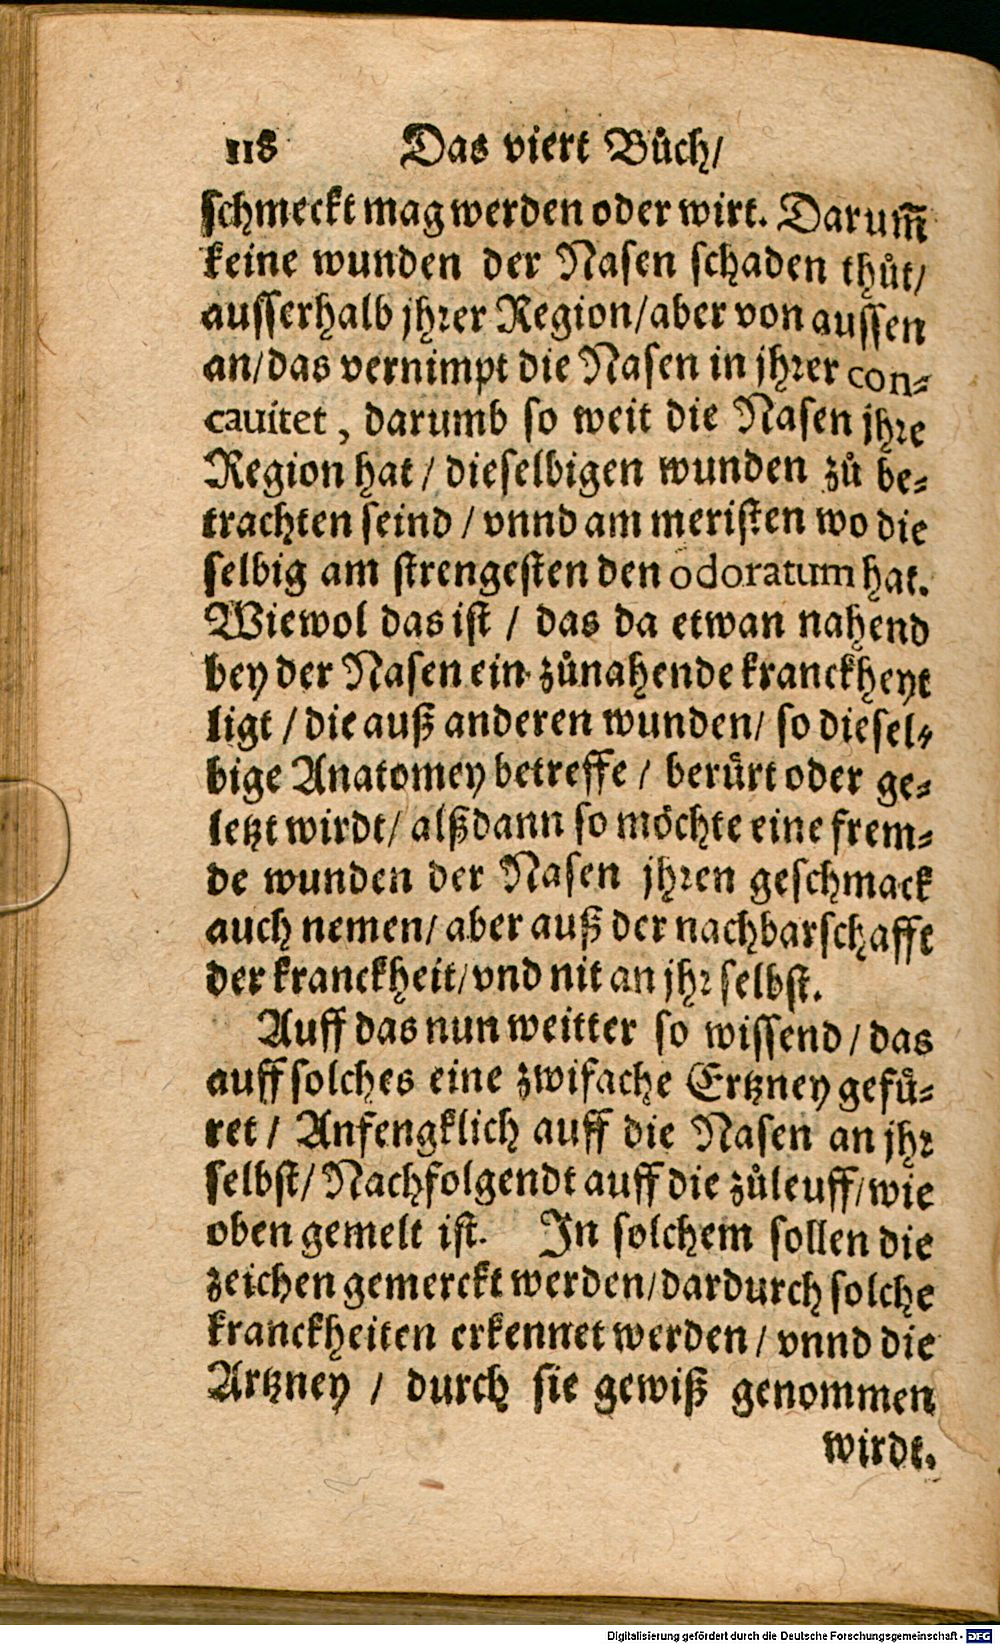 118 Das viert Bůch/
schmeckt mag werden oder wirt. Darum̃
keine wunden der Nasen schaden thůt/
ausserhalb jhrer Region/aber von aussen
an/das vernimpt die Nasen in jhrer con-
cauitet, darumb so weit die Nasen jhre
Region hat/ dieselbigen wunden zů be-
trachten seind/ vnnd am meristen wo die
selbig am strengesten den odoratum hat.
Wiewol das ist/ das da etwan nahend
bey der Nasen ein zůnahende kranckheyt
ligt/ die auß anderen wunden/ so diesel-
bige Anatomey betreffe/ berůrt oder ge-
letzt wirdt/ alßdann so möchte eine frem-
de wunden der Nasen jhren geschmack
auch nemen/ aber auß der nachbarschafft
der kranckheit/vnd nit an jhr selbst.
Auff das nun weitter so wissend/ das
auff solches eine zwifache Ertzney gefů-
ret/ Anfengklich auff die Nasen an jhr
selbst/ Nachfolgendt auff die zůleuff/wie
oben gemelt ist. In solchem sollen die
zeichen gemerckt werden/dardurch solche
kranckheiten erkennet werden/ vnnd die
Artzney/ durch sie gewiß genommen
wirdt.
Digitalisierung gefördert durch die Deutsche Forschungsgemeinschaft - DFG